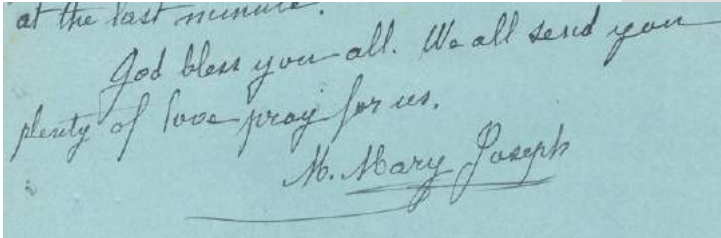 at the last minute.
God bless you all. We all send you
plenty of love pray for us.
M. Mary Joseph